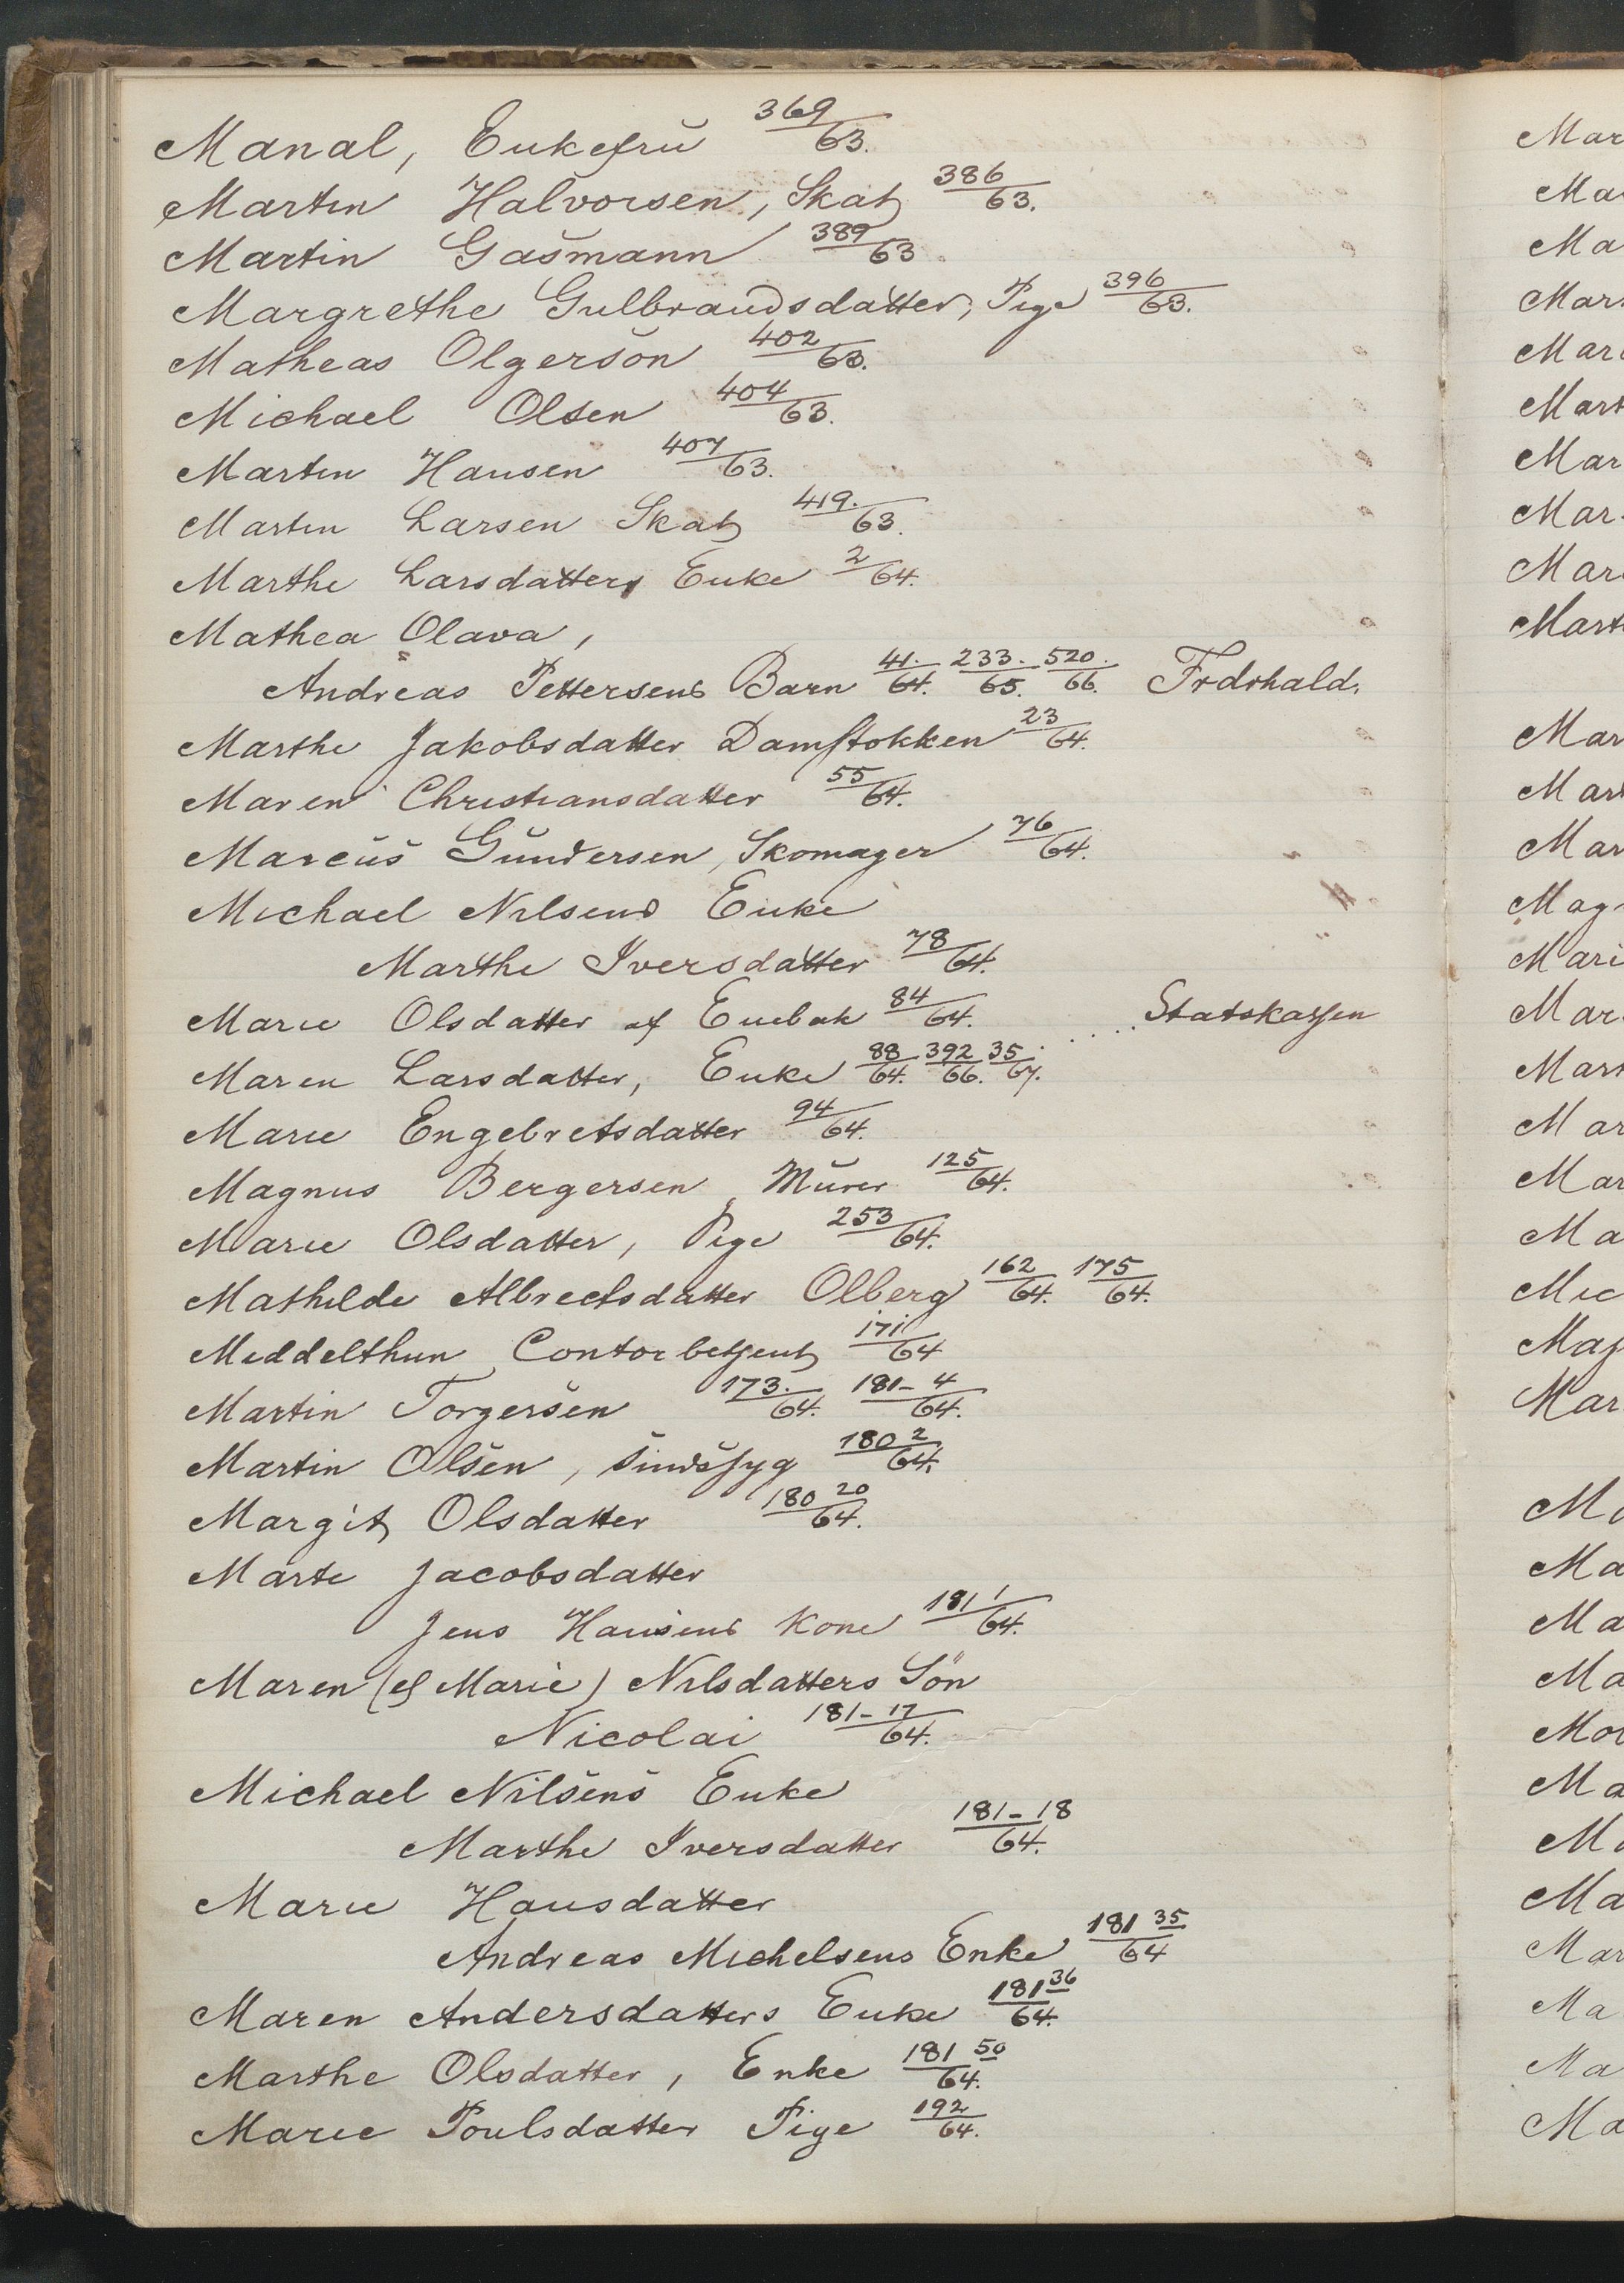 Manal, Enkefru 369/63.
Martin Halvorsen, Skat 386/63.
Martin Gasmann 389/63
Margrethe Gulbrandsdatter, Pige 396/63.
Matheas Olgerson 402/63.
Michael Olsen 404/63.
Martin Hansen 407/63.
Martin Larsen Skat 419./63.
Marthe Larsdatter, Enke 2/64.
Mathea Olava,
Andreas Pettersens Barn 41./64. 233./65. 520./66. Frdrhald.
Marthe Jakobsdatter Damstokken 23/64.
Maren Christiansdatter 55/64.
Marcus Gundersen, Skomager 76/64.
Michael Nilsens Enke
Marthe Iversdatter 78/64.
Marie Olsdatter af Enebak 84/64. .... Statskassen
Maren Larsdatter, Enke 88/64. 392/66. 35/67.
Marie Engebretsdatter 94/64.
Magnus Bergersen, Murer 125/64.
Marie Olsdatter, Pige 253/64.
Mathilde Albrectsdatter Olberg 162/64. 175/64.
Middelthun, Contorbetjent 171/64
Martin Torgersen 173./64. 181-4/64.
Martin Olsen, sindssyg 180 2/64.
Margit Olsdatter 180 20/64.
Marte Jacobsdatter
Jens Hansens Kone 181 1/64.
Maren (el Marie) Nilsdatters Sön
Nicolai 181-17/64.
Michael Nilsens Enke
Marthe Iversdatter 181-18/64.
Marie Hansdatter
Andreas Michelsens Enke 181 35/64
Maren Andersdatters Enke 181 36/64.
Marthe Olsdatter, Enke 181 50/64.
Marie Poulsdatter Pige 192/64.